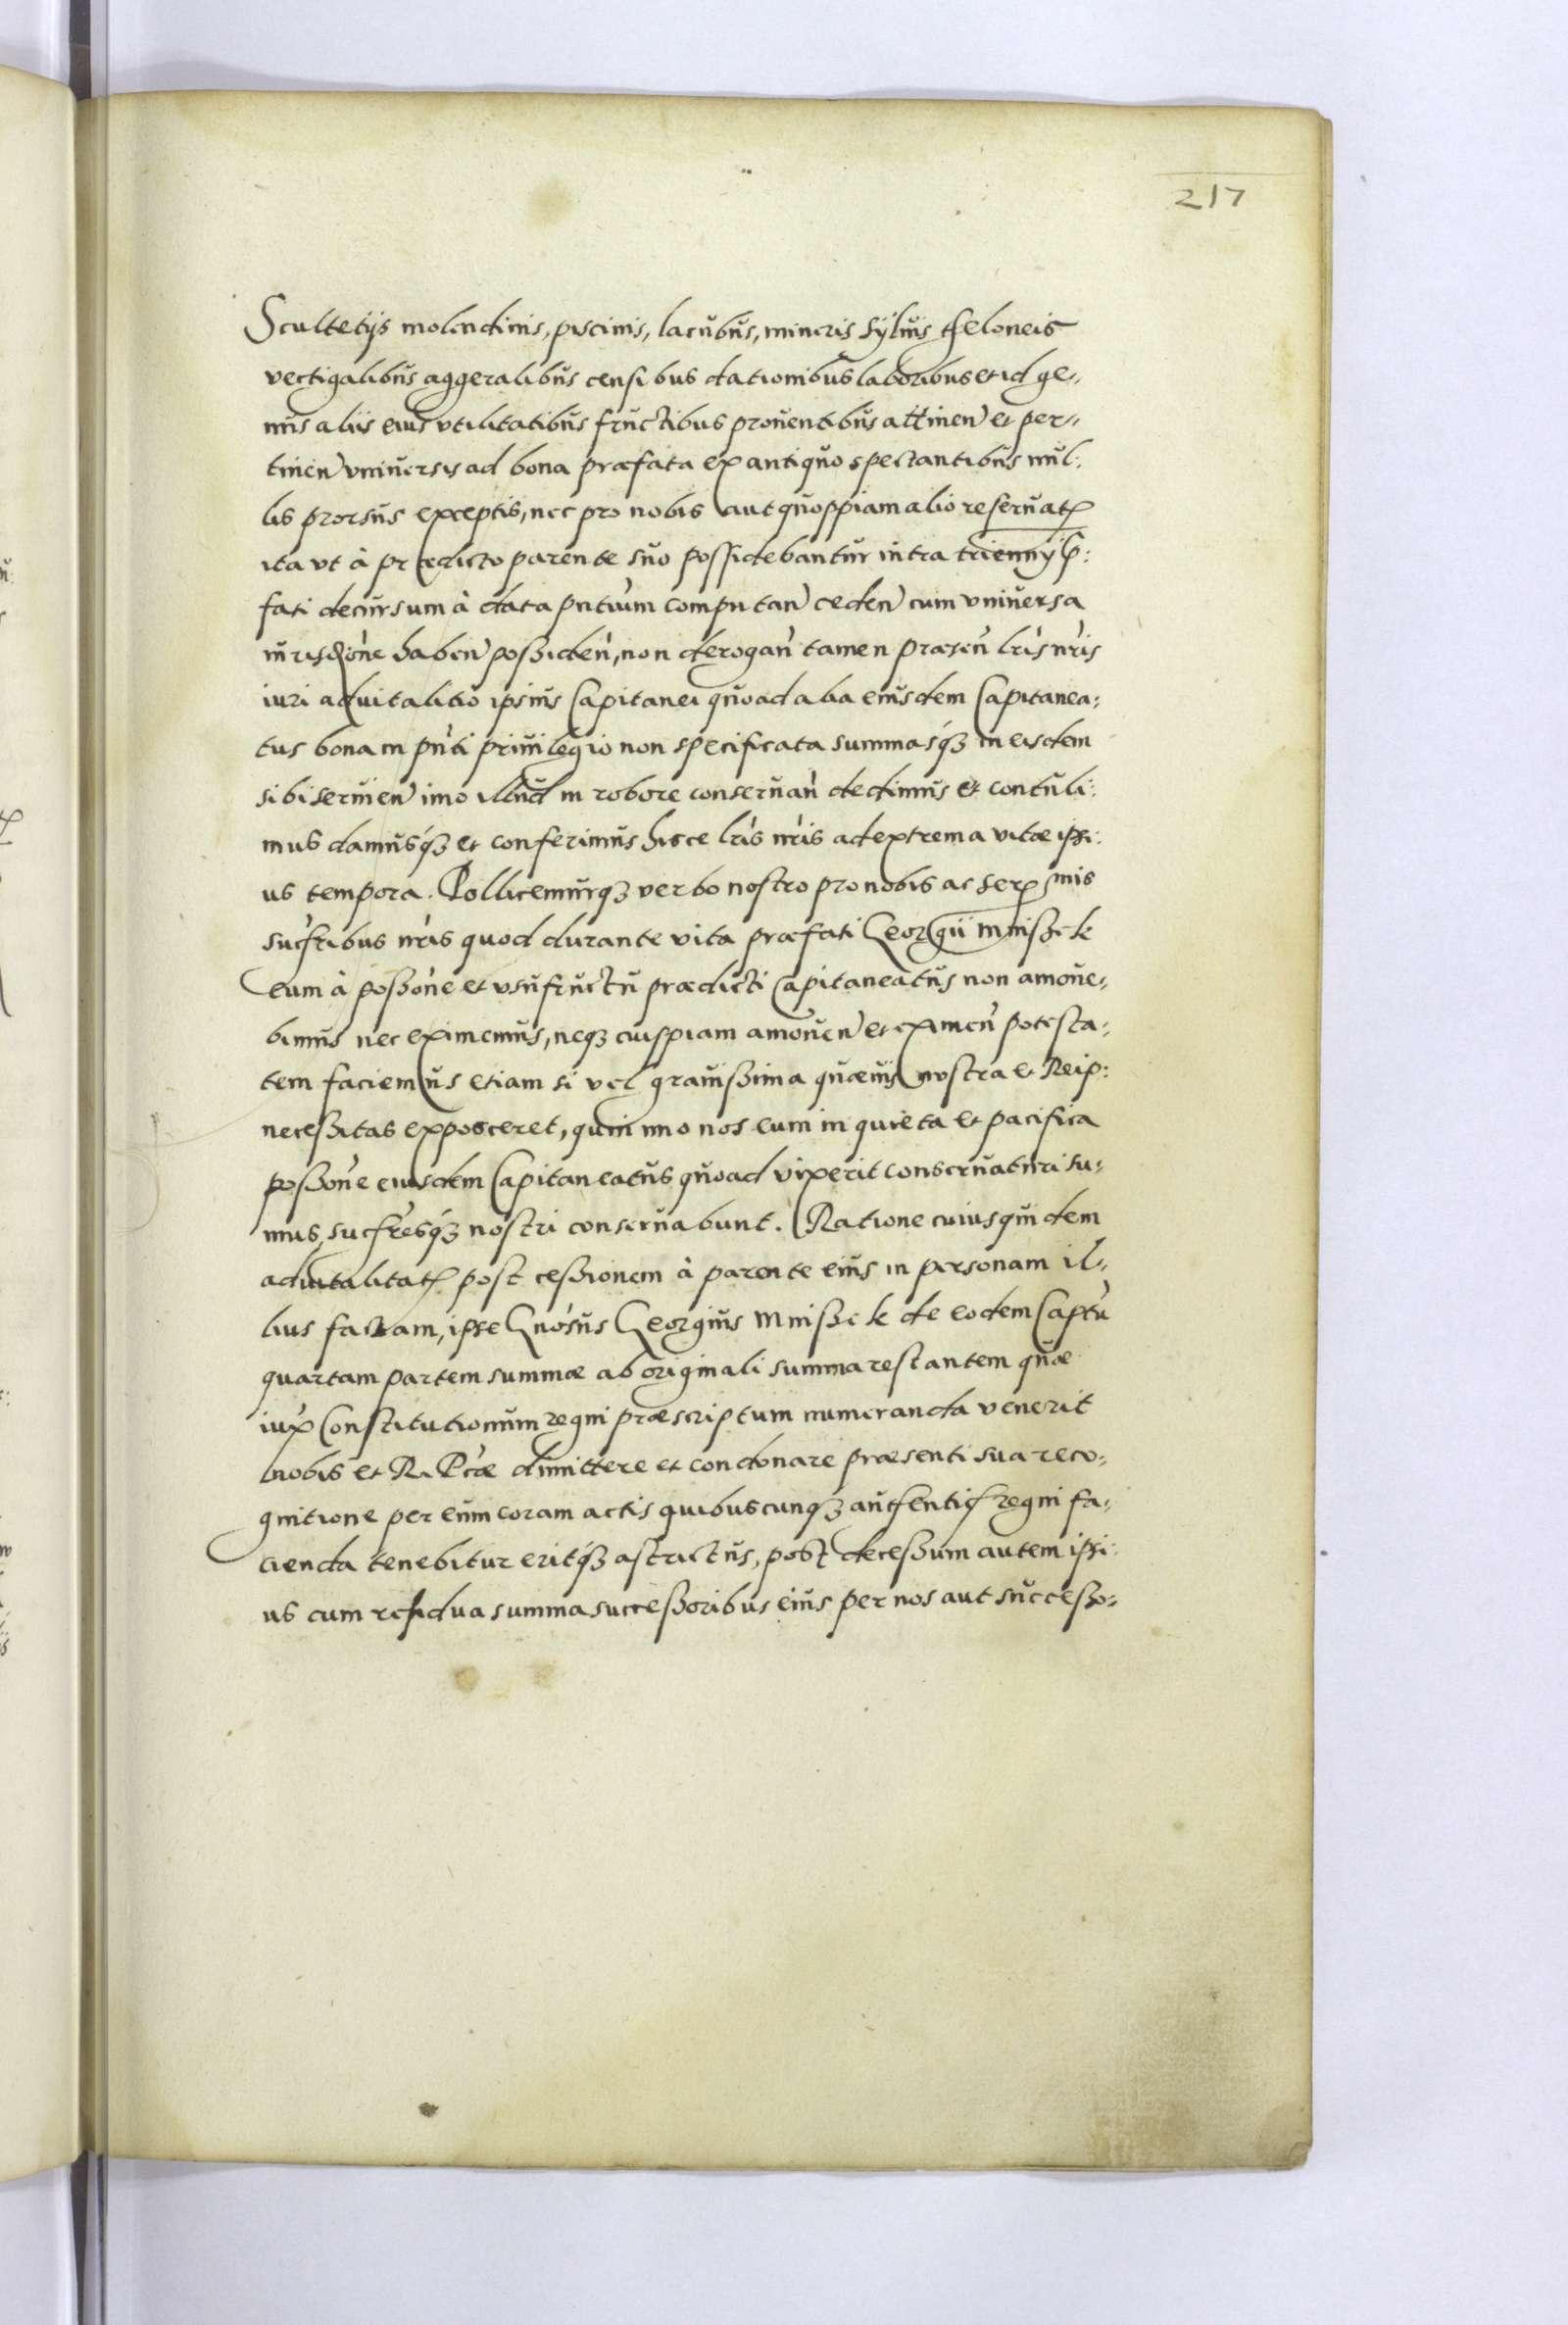 217
Scultetijs molendinis, piscinis, lacubus, mineris sÿluis theloneis
vectigalibus aggeralibus censibus dationibus laboribus et id ge-
nus aliis eius vtilitatibus fructibus prouentibus attinen et per-
tinen vniuersis ad bona præfata ex antiquo spectantibus nul:
lis prorsus exceptis, nec pro nobis aut quoppiam alio reseruat
ita vt à prædicto parente suo possidebantur intra triennÿ p:
fati decursum à data pntium computan ceden cum vniuersa
iurisdione haben possiden, non derogan tamen præsen lris nris
iuri aduitalitio ipsius Capitanei quoad alia eiusdem Capitanea:
tus bona in pnti priuilegio non specificata summasq3 in eisdem
sibi seruien imo illud in robore conseruan dedimus et contuli:
mus damusq3 et conferimus hisce lris nris ad extrema vitæ ipsi:
us tempora. Pollicemurq3 verbo nostro pro nobis ac Ser mis
sucribus nris quod durante vita præfati Georgii Mnissek
eum à possone et vsufructu prædicti Capitaneatus non amoue-
bimus nec eximemus, neq3 cuispiam amouen et eximen potesta-
tem faciemus etiam si vel grauissima quæuis nostra et Reip:
necessitas exposceret, quin imo nos eum in quieta et pacifica
possone eiusdem Capitaneatus quoad vixerit conseruaturi su-
mus, sucresq3 nostri conseruabunt. Ratione cuiusquidem
aduitalitat post cessionem à parente eius in personam il-
lius factam, ipse Gnosus Georgius Mnissek de eodem Captu
quartam partem summæ ab originali summa restantem quæ
iux Constitutionum regni præscriptum numeranda venerit
nobis et R. Pcæ dimittere et condonare præsenti sua reco-
gnitione per eum coram actis quibuscunq3 authentic regni fa-
cienda tenebitur eritq3 astrictus, post decessum autem ipsi:
us cum residua summa successoribus eius per nos aut successo-